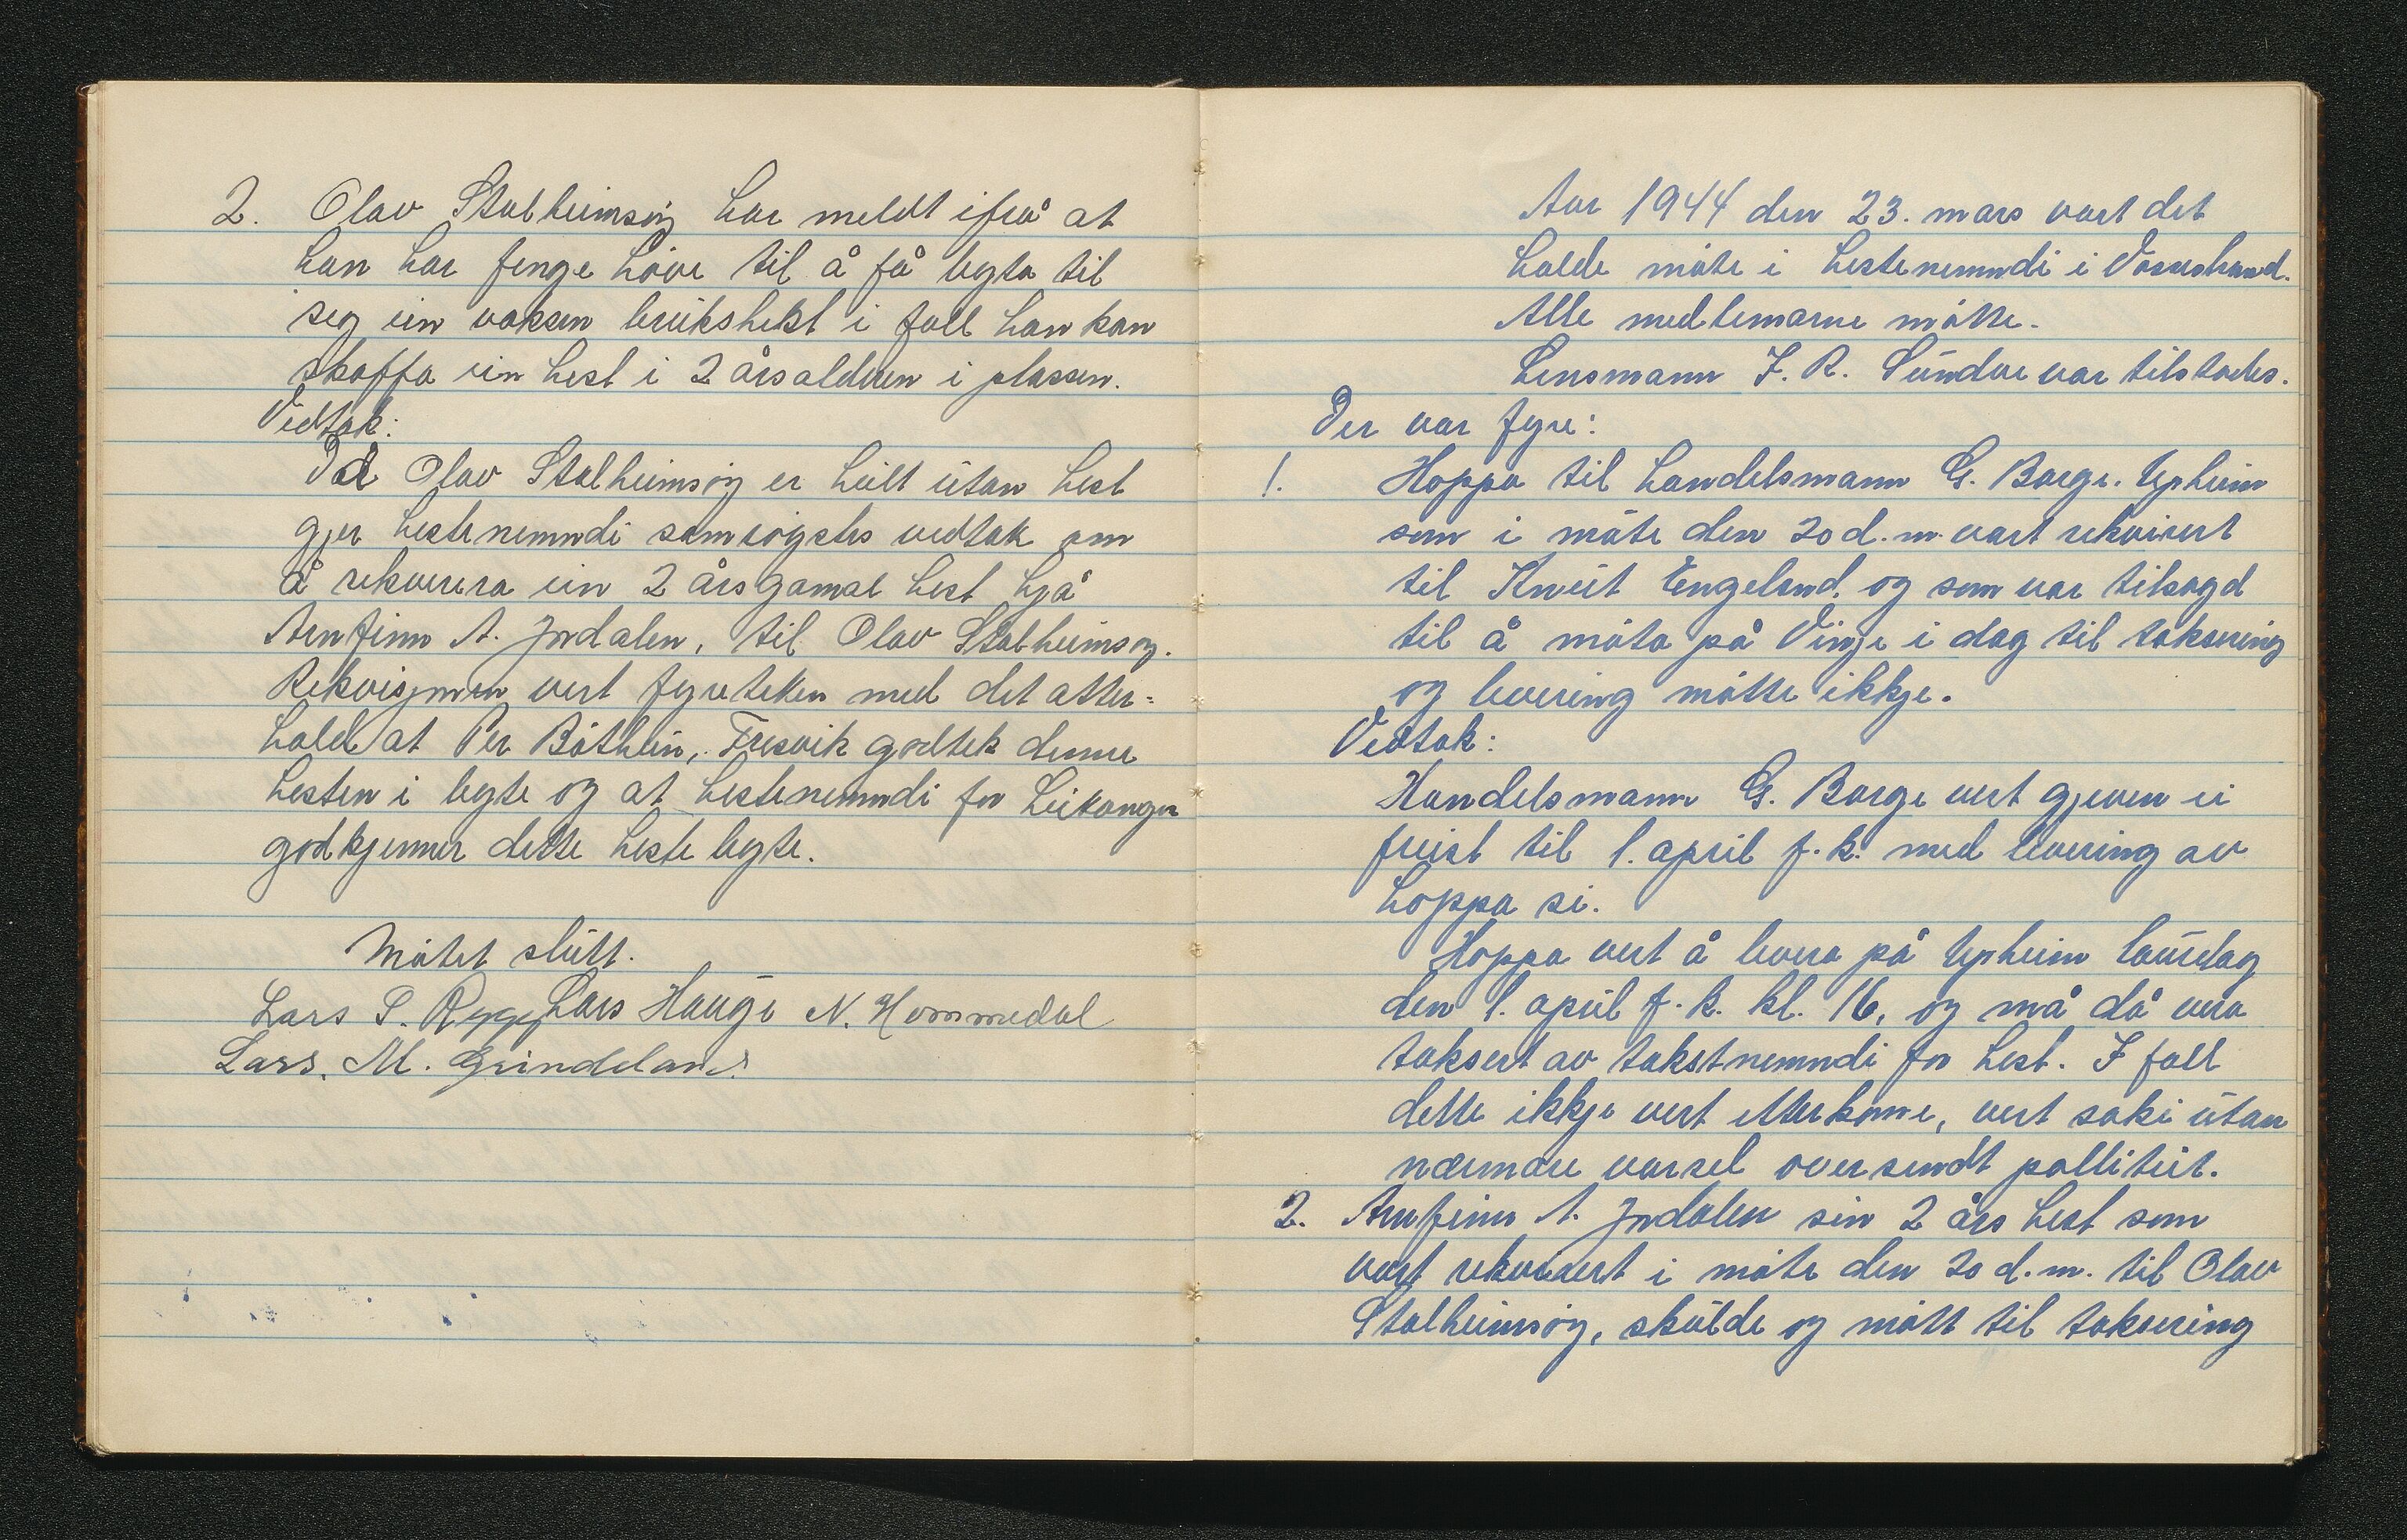 2. Olav Stalheimsøy har meldt ifrå at
han har fenge høve til å få byta til
seg ein vaksen brukshest i fall han kan
skaffa ein hest i 2 årsalderen i plassen.
Vedtak:
Då Olav Stalheimsøy er heilt utan hest
gjer hestenemndi samrøystes vedtak om
å rekvirera ein 2 årsgamal hest hjå
Arnfinn A. Jordalen, til Olav Stalheimsøy.
Rekvisjonen vert fyreteken med det atter-
hald at Per Bøthun, Fresvik godtek denne
hesten i byte og at hestenemndi for Leikanger
godkjenner dette hestebyte.
Møtet slutt.
Lars S. Rygg Lars Hauge N. Hommedal
Lars. M. Grindeland
Aar 1944 den 23. mars vart det
halde møte i hestenemndi i Vossestrand.
Alle medlemarne møtte.
Lensmann I. R. Sundve var tilstades.
Der var fyre:
1. Hoppa til handelsmann G. Barge. Upheim
som i møte den 20 d. m. vart rekvirert
til Knut Engeland. og som var tilsagd
til å møta på Vinje i dag til taksering
og levering møtte ikkje.
Vedtak:
Handelsmann G. Barge vert gjeven ei
freist til 1. april f. k. med levering av
hoppa si.
Hoppa vert å levera på Upheim laurdag
den 1. april f. k. kl. 16, og må då vera
taksert av takstnemndi for hest. I fall
dette ikkje vert etterkome, vert saki utan
nærmare varsel oversendt pollitiet.
2. Arnfinn A. Jordalen sin 2 års hest som
vart rekvirert i møte den 20 d. m. til Olav
Stalheimsøy, skulde og møtt til taksering